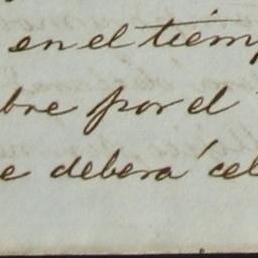 en el tiemp
bre por el
e deberá cel